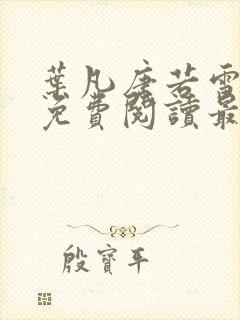 葉凡唐若雪
免費閱讀最
殷寶平